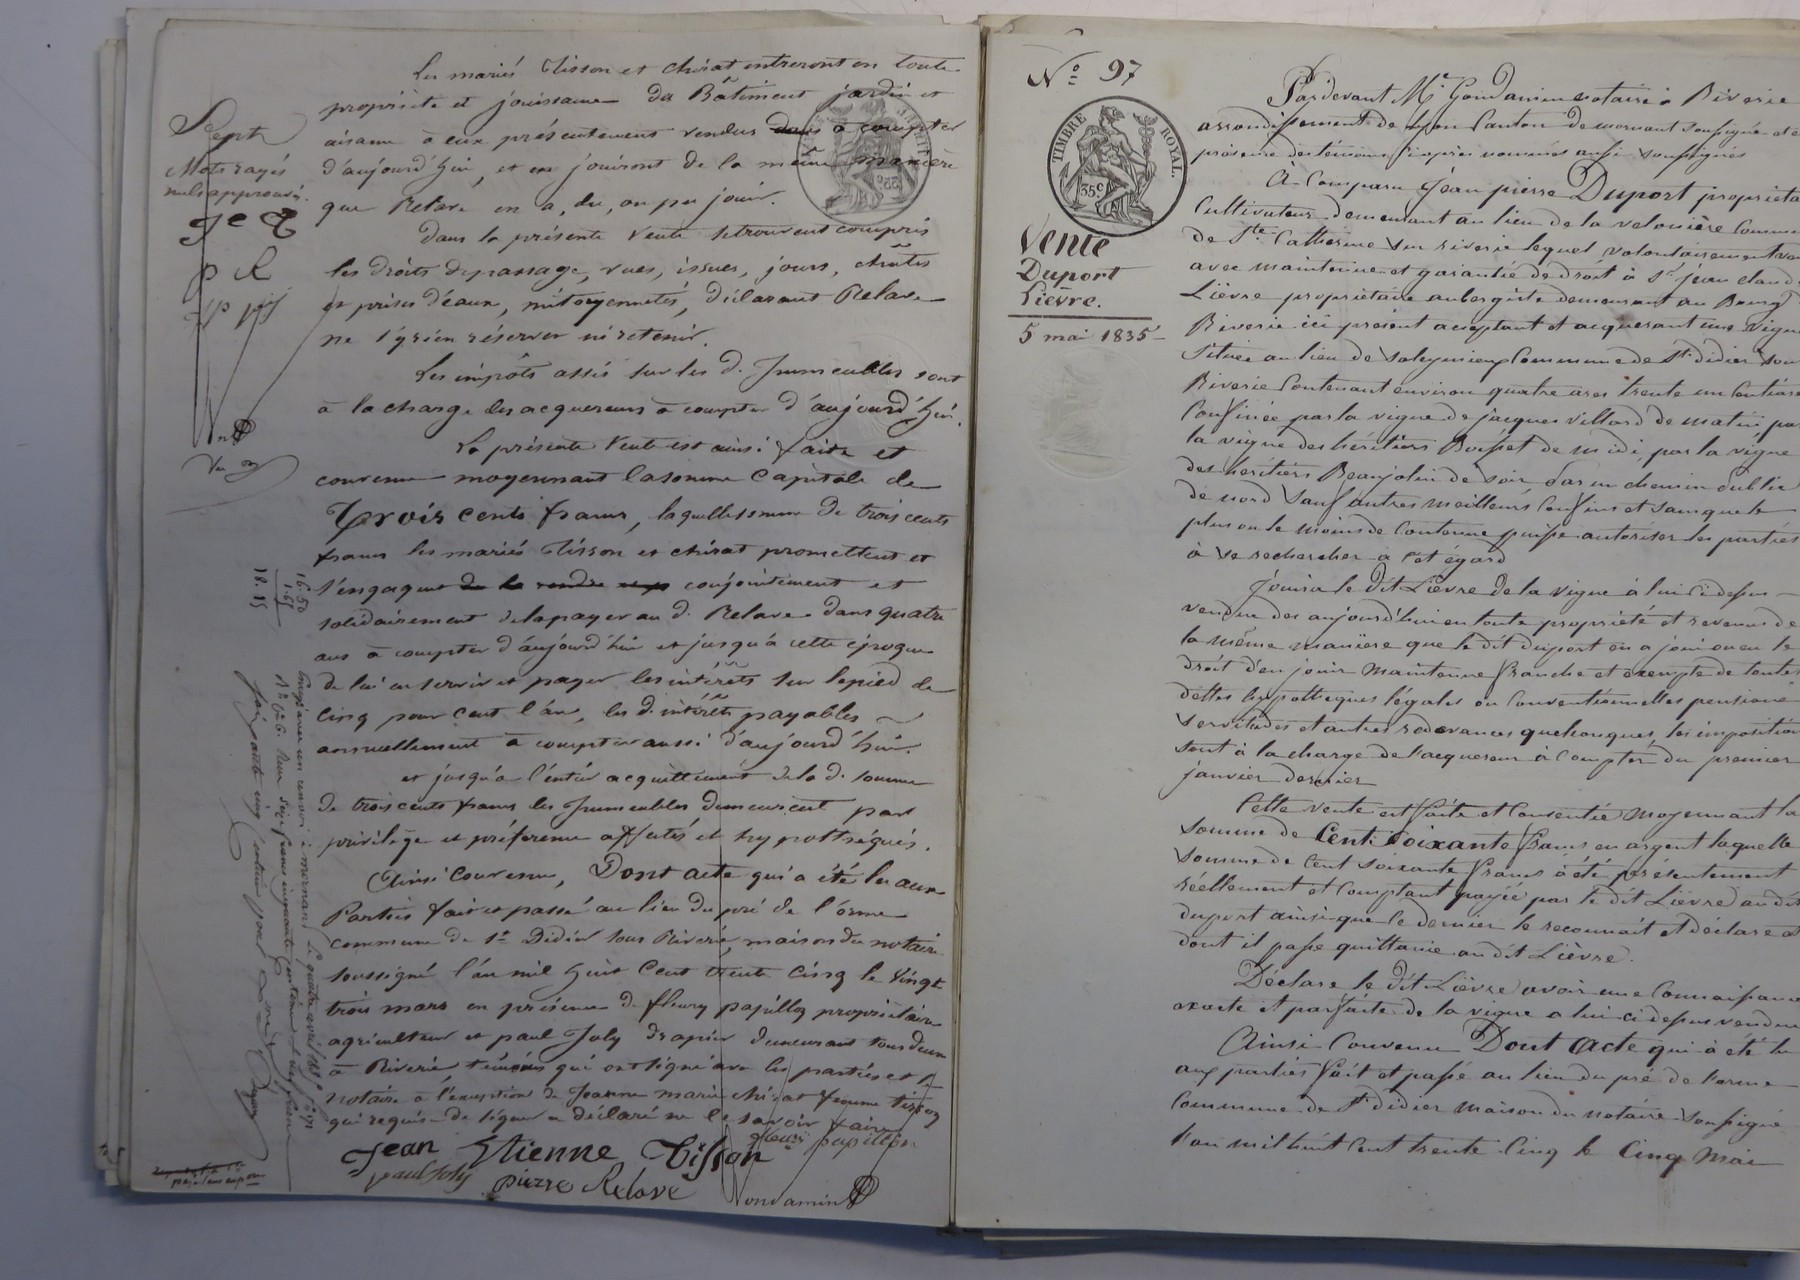 Les mariés Tisson et Chirat entreront en toute
propriété et jouissance du Bâtiment jardin et
aisance à eux présentement vendus dans à compter
d'aujourd'hui, et en jouiront de la même manière
que Relave en a, du, ou pu jouir.
Dans la présente vente se trouvent compris
les droits de passage, vues, issues, jours, chûtes
et prises d'eaux, mitoyennetés, déclarant Relave
ne s'y rien réserver ni retenir.
Les impôts assis sur les d. Immeubles sont
à la charge des acquereurs à compter d'aujourd'hui.
La présente Vente est ainsi faite et
convenue moyennant la somme Capitale de
Trois cents francs, laquelle somme de trois cents
francs les mariés Tisson et chirat promettent et
s'engagent de le rendre conjointement et
solidairement de la payer au d. Relave dans quatre
ans à compter d'aujourd'hui et jusqu'à cette époque
de lui en servir et payer les intérêts sur le pied de
Cinq pour cent l'an, les d. intérêts payables
annuellement à compter aussi d'aujourd'hui.
et jusqu'à l'entier acquittement de la d. somme
de trois cents francs les Immeubles demeurent par
privilège et préférence affectés et hypothéqués.
Ainsi Convenu, Dont acte qui a été lu aux
Parties fait et passé au lieu du pré de l'orme
commune de St Didier sous Riverie, maison du notaire
soussigné l'an mil huit Cent trente cinq le vingt
trois mars en présence de fleury papillon propriétaire
agriculteur et paul Joly drapier demeurant tous deux
à Riverie, témoins qui ont signé avec les parties et le
notaire à l'exception de Jeanne marie chirat femme tisson
qui requise de signer a déclaré ne le savoir faire
fleuri papillon
Jean Etienne Tisson
paul Joly
pierre Relave
Gondamin
Sept
Mots rayés
nuls approuvés.
J e T
p R
fp pj
Vu
16.50
1.65
18.15
N° 97
TIMBRE ROYAL.
35c
Vente
Duport
Lièvre.
5 mai 1835
Pardevant Me Gondamin notaire à Riverie
arrondissement de Lyon Canton de mornant soussigné et en
présence des témoins ci après nommés aussi soussignés
A Comparu Jean pierre Duport propriéta
Cultivateur demeurant au lieu de la velonière Commu
de Ste Catherine sur riverie lequel volontairement ven
avec maintenue et garantie de droit à Sr jean claude
Lièvre propriétaire aubergiste demeurant au Bourg
Riverie ici présent acceptant et acquerant une vigne
située au lieu de Commune de St didier sous
Riverie Contenant environ quatre ares trente un Centiares
Confinée par la vigne de jacques villard de matin par
la vigne des héritiers de midi, par la vigne
des héritiers Beaujolin de soir par un chemin public
de nord sauf autres meilleurs Confins et sans que le
plus ou le moins de Contenue puisse autoriser les parties
à se rechercher à cet égard
Jouira le dit Lièvre de la vigne à lui ci dessus
vendue des aujourd'hui en toute propriété et revenus de
la même manière que le dit duport en a joui ou eu le
droit d'en jouir Maintenue franche et exempte de toutes
dettes hypothèques légales ou Conventionnelles pensions
servitudes et autres redevances quelconques, les imposition
sont à la charge de l'acquereur à Compter du premier
janvier dernier
Cette vente est faite et Consentie Moyennant la
somme de Cent soixante francs en argent laquelle
somme de Cent soixante francs à été présentement
réellement et Comptant payée par le dit Lièvre au dit
duport ainsi que ce dernier le reconnait et déclare et
dont il passe quittance au dit Lièvre.
Déclare le dit Lièvre avoir une Connaissance
exacte et parfaite de la vigne a lui ci dessus vendue
Ainsi Convenu Dont Acte qui à été lu
aux parties fait et passé au lieu du pré de l'orme
Commune de St didier maison du notaire soussigné
l'an mil huit Cent trente Cinq le Cinq Mai